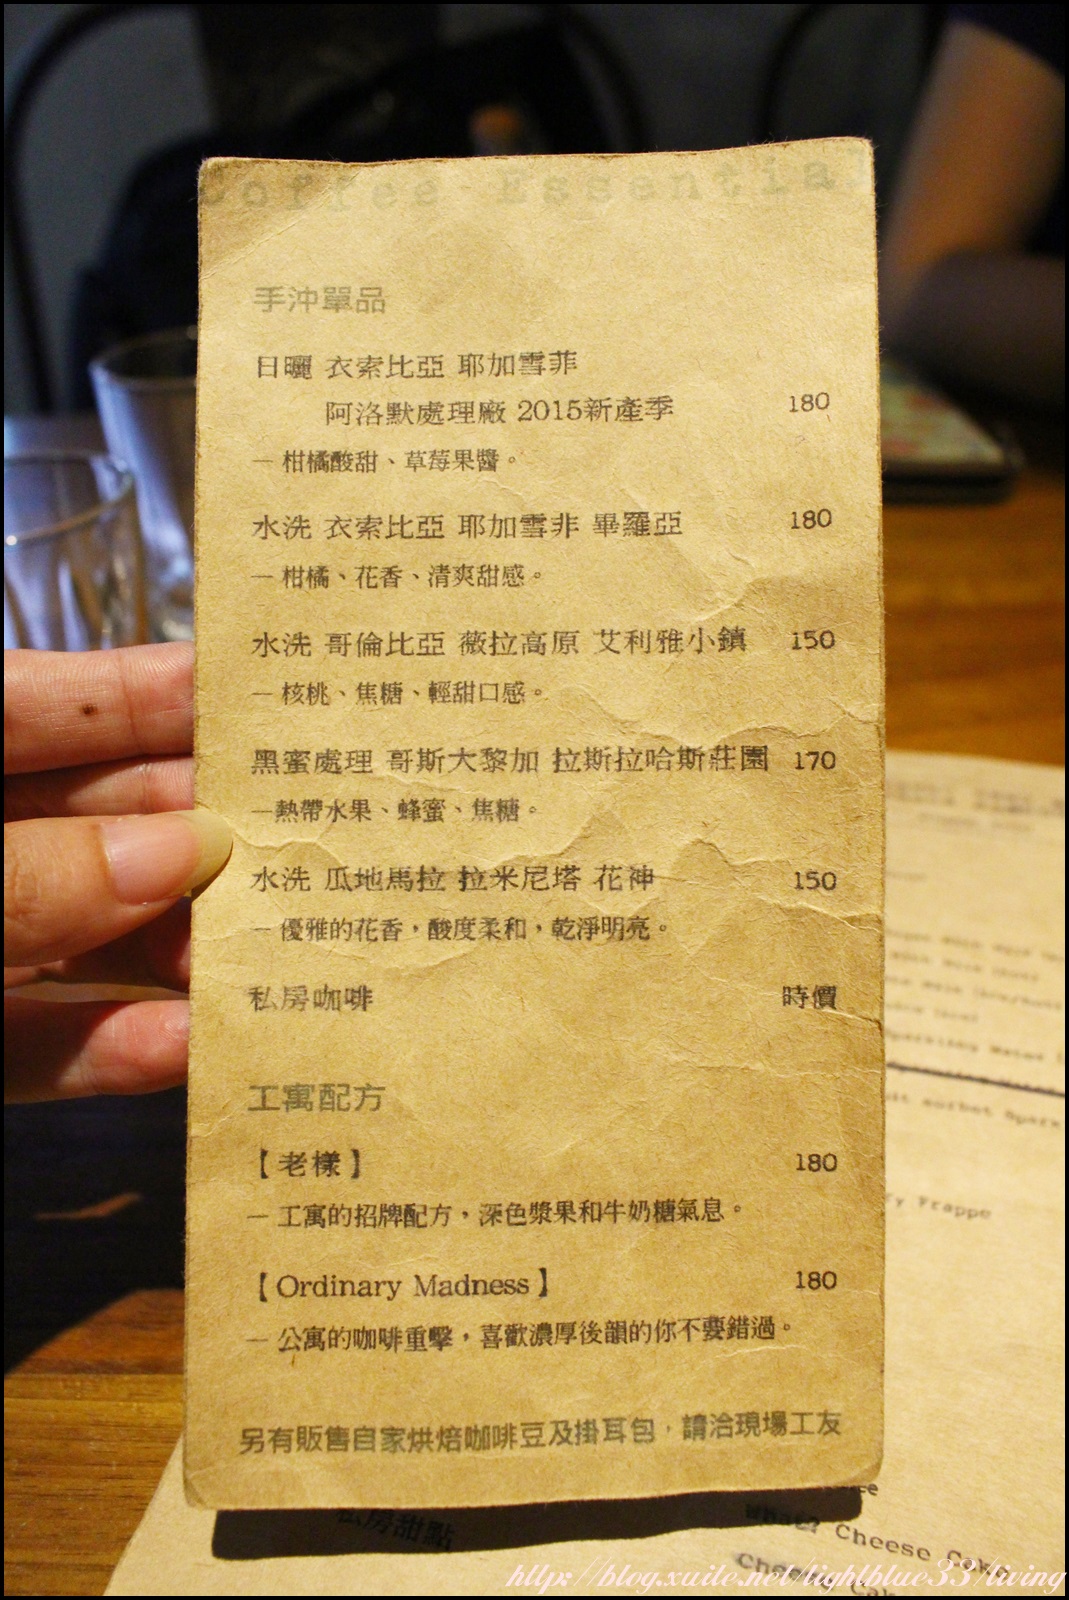 Coffee Essential
手沖單品
日曬 衣索比亞 耶加雪菲
阿洛默處理廠 2015新產季 180
— 柑橘酸甜、草莓果醬。
水洗 衣索比亞 耶加雪非 畢羅亞 180
— 柑橘、花香、清爽甜感。
水洗 哥倫比亞 薇拉高原 艾利雅小鎮 150
— 核桃、焦糖、輕甜口感。
黑蜜處理 哥斯大黎加 拉斯拉哈斯莊園 170
—熱帶水果、蜂蜜、焦糖。
水洗 瓜地馬拉 拉米尼塔 花神 150
— 優雅的花香，酸度柔和，乾淨明亮。
私房咖啡 時價
工寓配方
【老樣】 180
— 工寓的招牌配方，深色漿果和牛奶糖氣息。
【Ordinary Madness】 180
— 公寓的咖啡重擊，喜歡濃厚後韻的你不要錯過。
另有販售自家烘焙咖啡豆及掛耳包，請洽現場工友
Frappe
私房甜點
What? Cheese Cake
http://blog.xuite.net/lightblue33/living